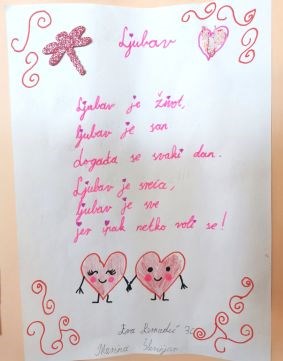 Ljubav
Ljubav je život,
ljubav je san
događa se svaki dan.
Ljubav je sreća,
ljubav je sve
jer ipak netko voli se!
Eva
Marina